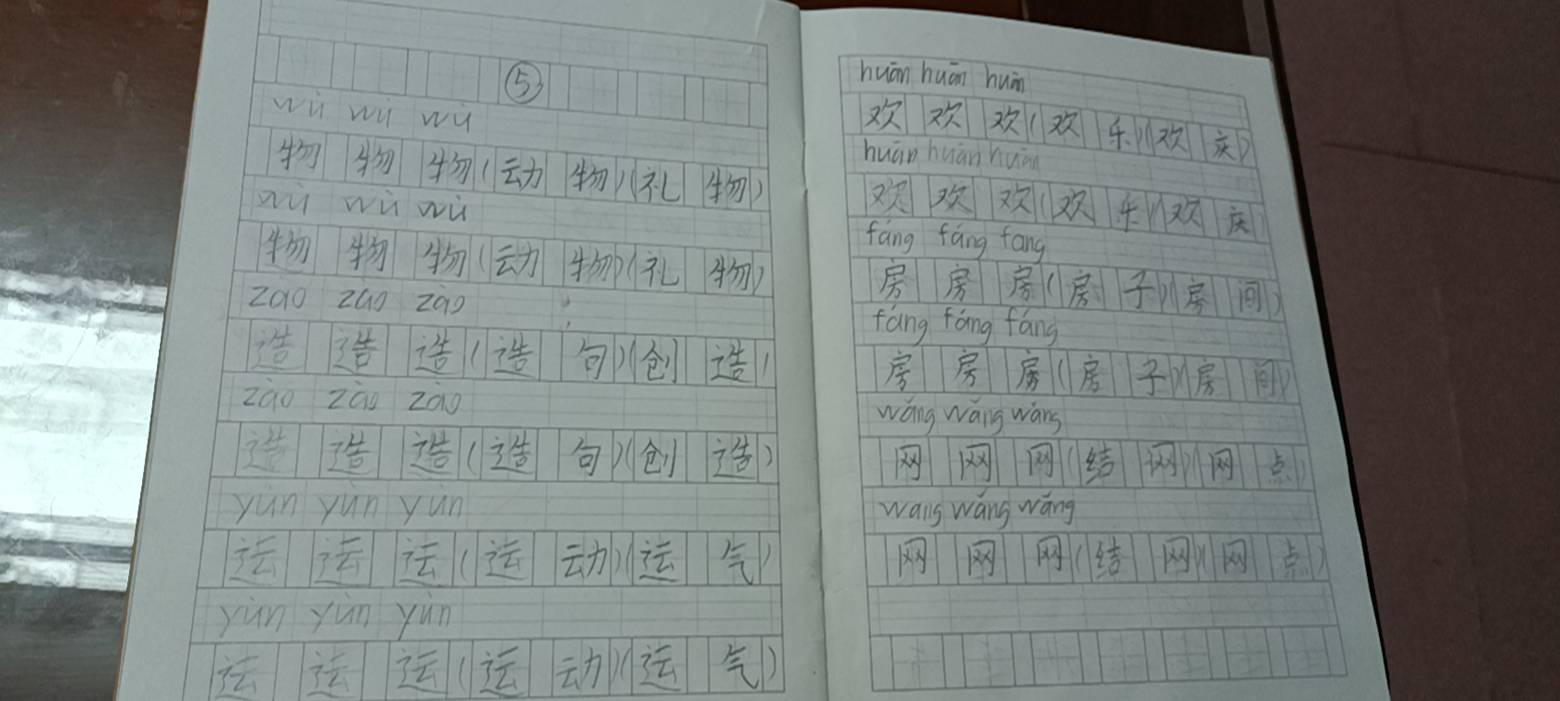 ⑤
wù wù wù
物 物 物(动 物)(礼 物)
wù wù wù
物 物 物(动 物)(礼 物)
zào zào zào
造 造 造(造 句)(创 造)
zào zào zào
造 造 造(造 句)(创 造)
yùn yùn yùn
运 运 运(运 动)(运 气)
yùn yùn yùn
运 运 运(运 动)(运 气)
huān huān huān
欢 欢 欢(欢 乐)(欢 庆)
huān huān huān
欢 欢 欢(欢 乐)(欢 庆)
fáng fáng fang
房 房 房(房 子)(房 间)
fáng fáng fáng
房 房 房(房 子)(房 间)
wǎng wǎng wǎng
网 网 网(结 网)(网 点)
wang wǎng wǎng
网 网 网(结 网)(网 点)